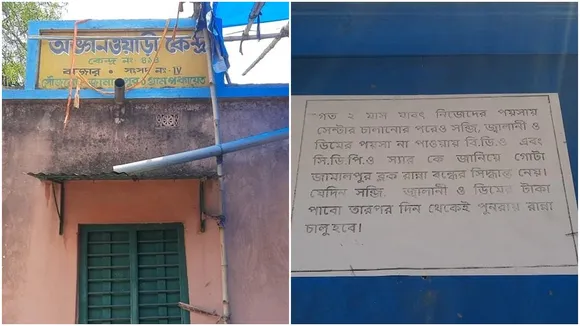 অঙ্গনওয়াড়ী কেন্দ্র
কেন্দ্র নং
বাজার • সংসদ নং-IV
গ্রাম পঞ্চায়েত
গত ২ মাস যাবৎ নিজেদের পয়সায়
সেন্টার চালানোর পরেও সব্জি, জ্বালানী ও
ডিমের পয়সা না পাওয়ায় বি.ডি.ও এবং
সি.ডি.পি.ও স্যার কে জানিয়ে গোটা
জামালপুর ব্লক রান্না বন্ধের সিদ্ধান্ত নেয়।
যেদিন সব্জি, জ্বালানী ও ডিমের টাকা
পাবো তারপর দিন থেকেই পুনরায় রান্না
চালু হবে।